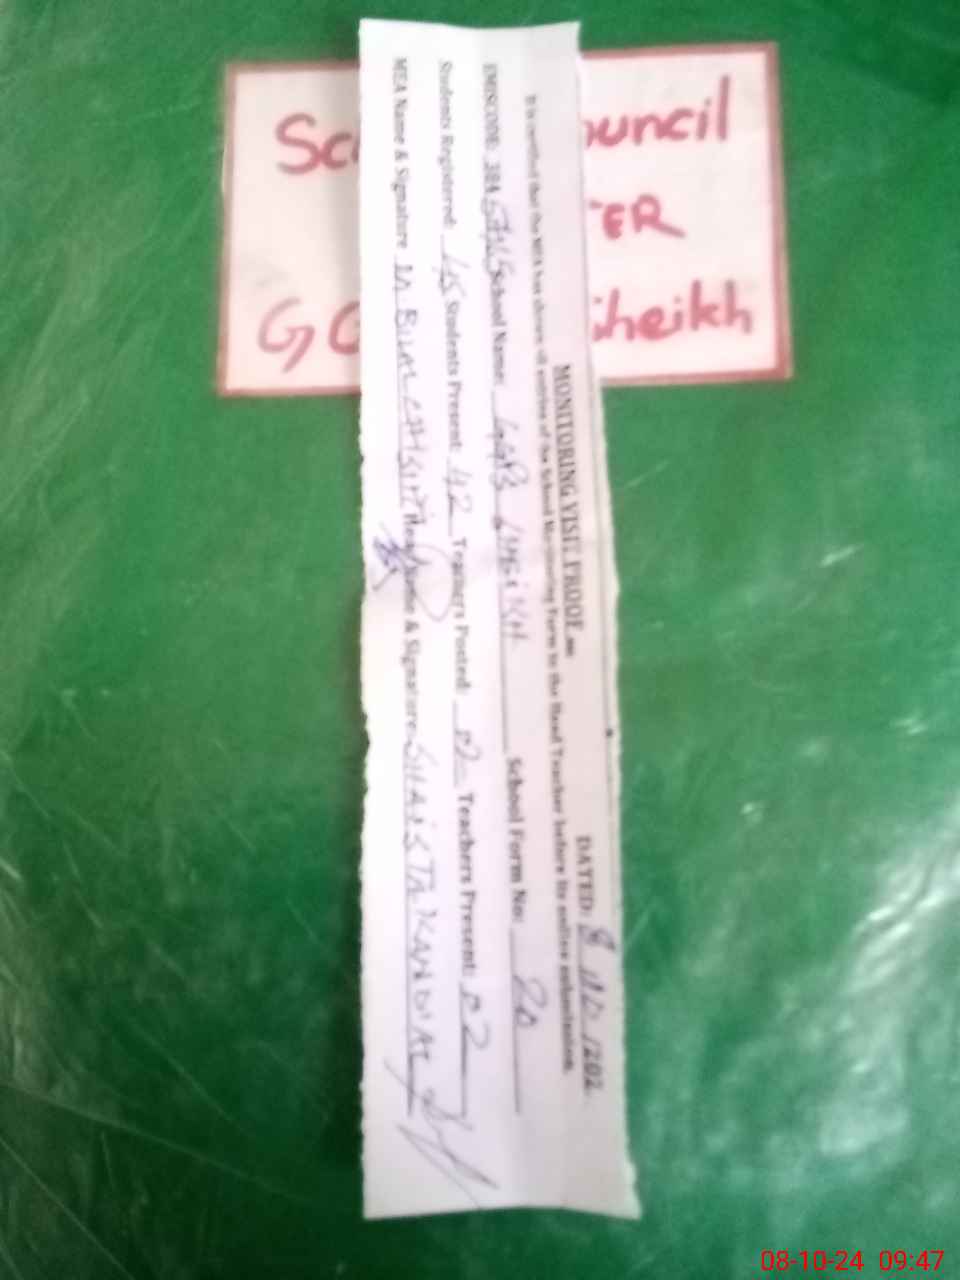 MONITORING VISIT PROOF
DATED: 8 /10 /202
It is certified that the MEA has shown all entries of the School Monitoring Form to the Head Teacher before its online submission.
EMISCODE: 384 School Name: GGPS SHEIKH School Form No: 20
Students Registered: 45 Students Present: 42 Teachers Posted: 02 Teachers Present: 02
MEA Name & Signature M. BILAL Head Name & Signature SHAISTA
Sc ouncil
ER
GG Sheikh
08-10-24 09:47